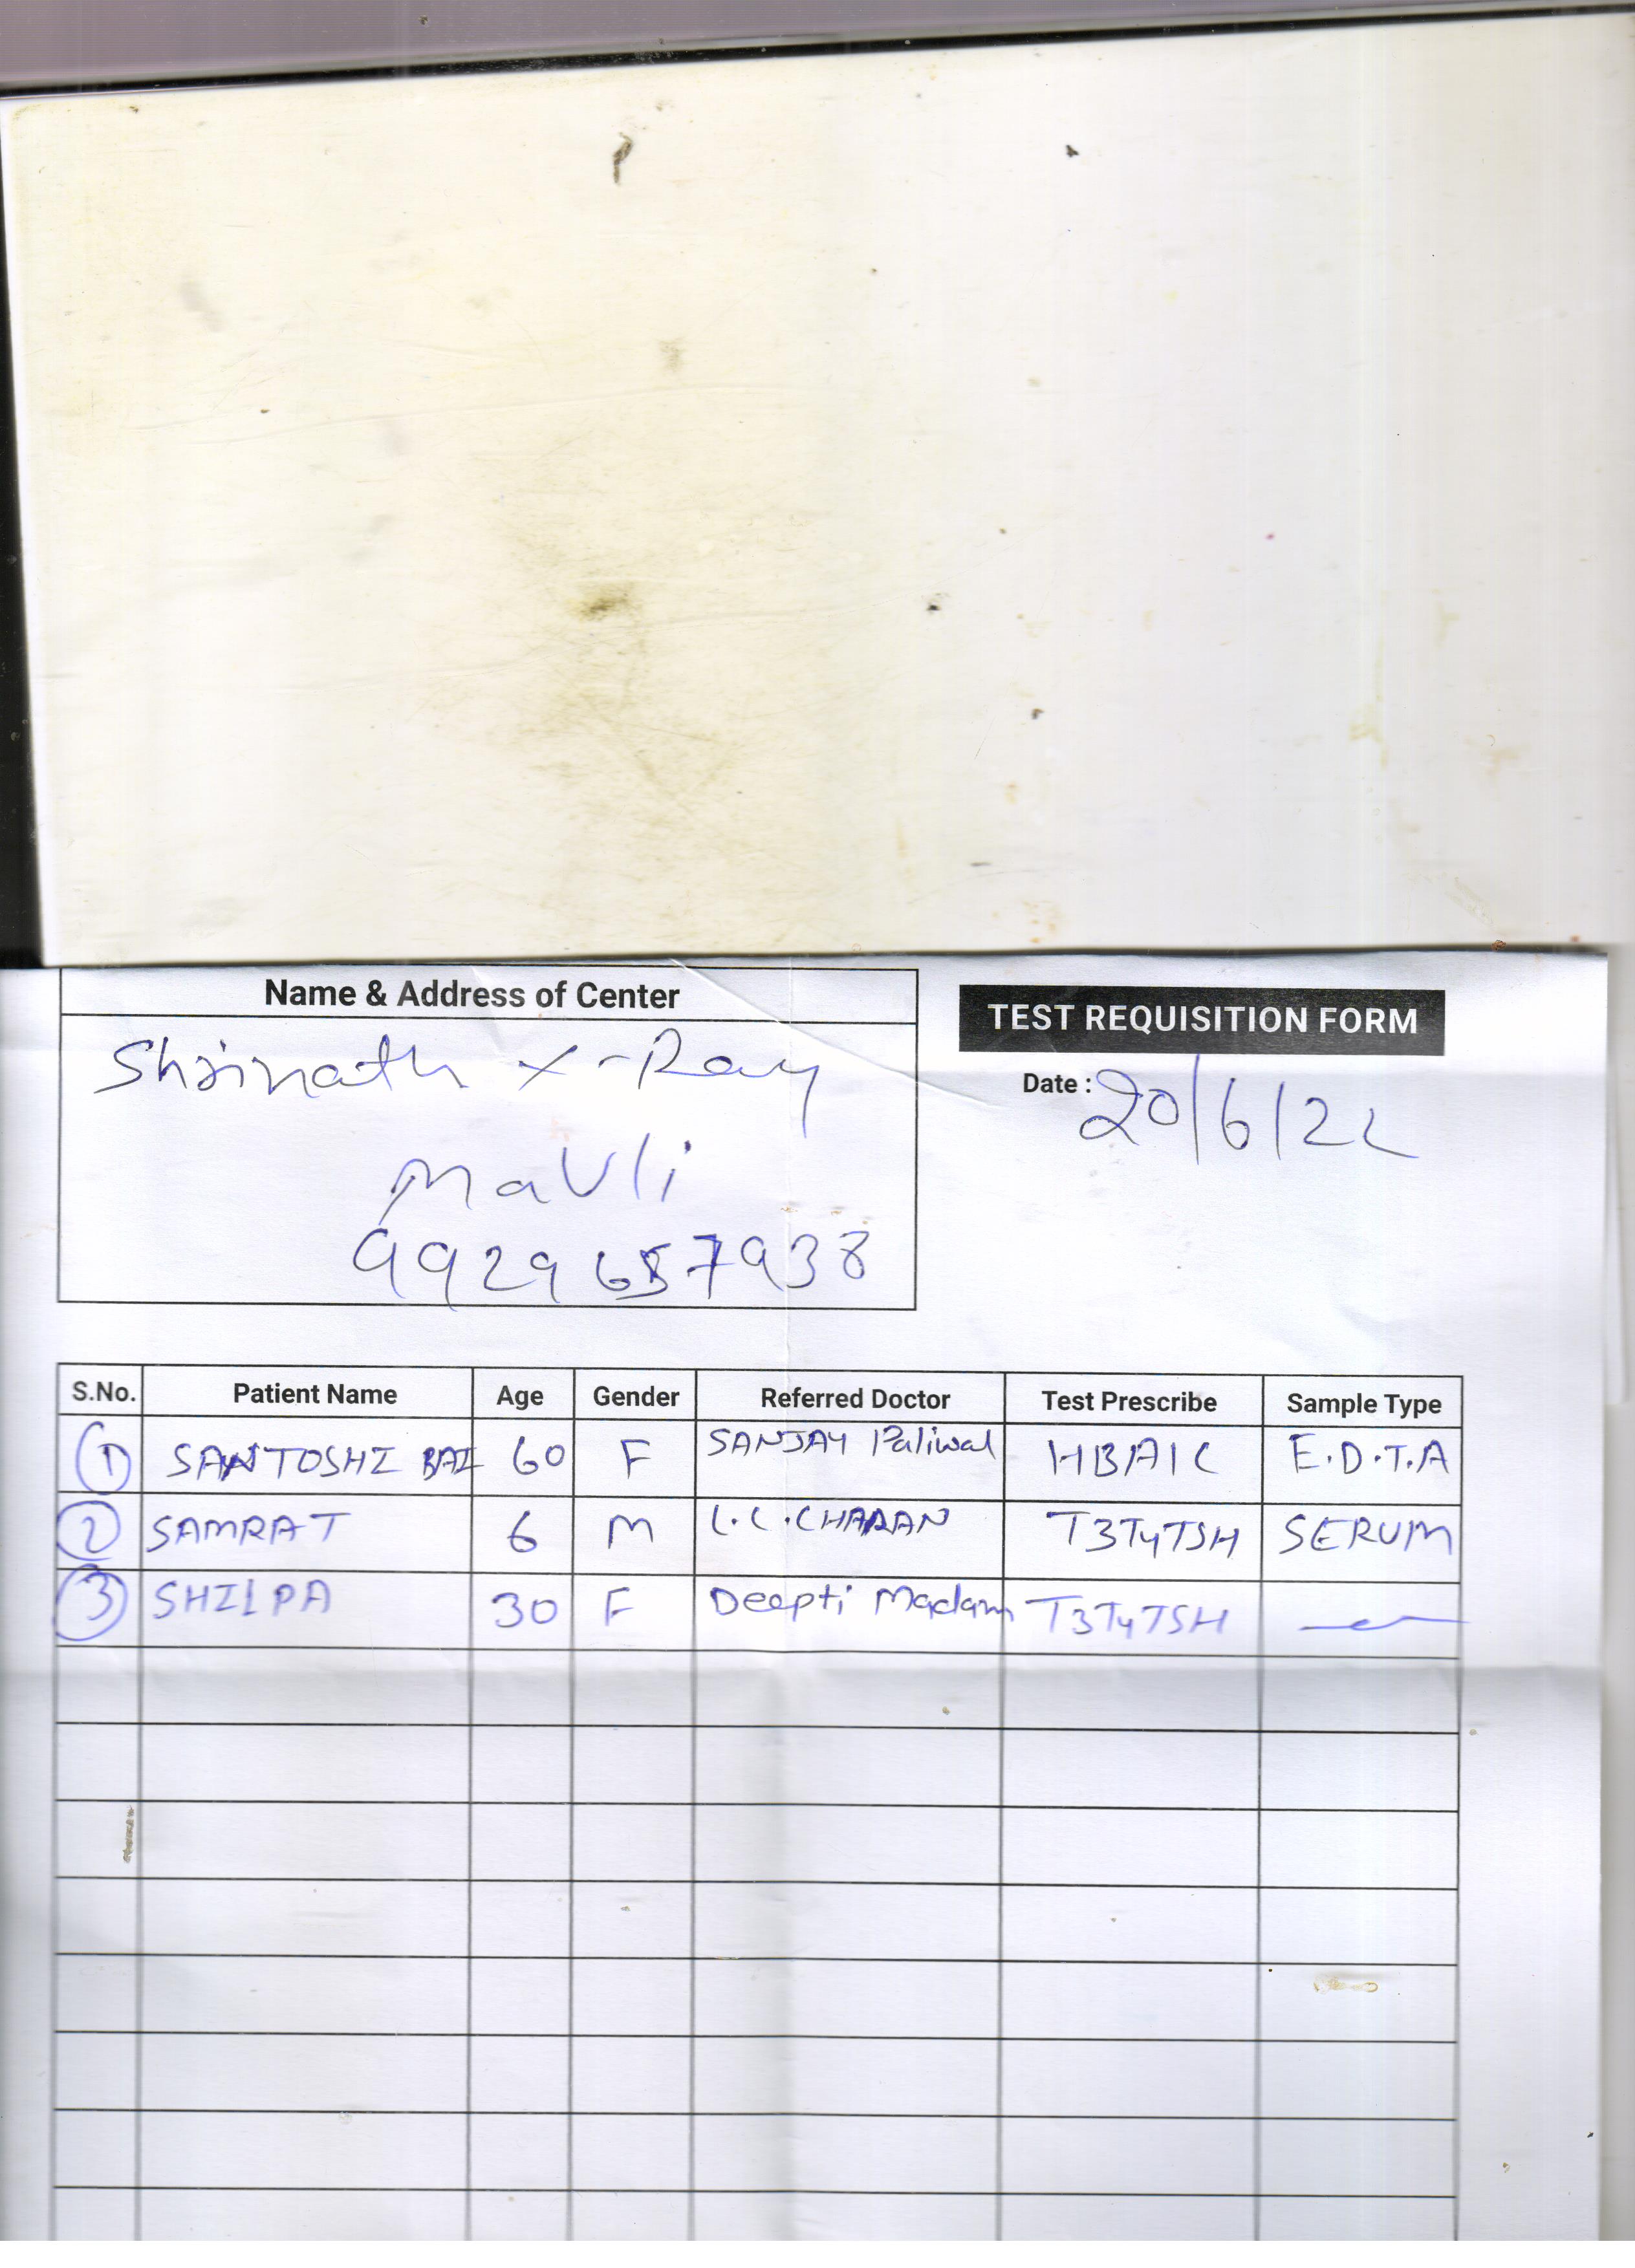 Name & Address of Center
TEST REQUISITION FORM
Shrinath X-Ray
Mavli
9929657938
Date : 20/6/22
S.No. Patient Name Age Gender Referred Doctor Test Prescribe Sample Type
1 SANTOSHI BAI 60 F SANJAY Paliwal HBA1C E.D.T.A
2 SAMRAT 6 M L.C.CHARAN T3T4TSH SERUM
3 SHILPA 30 F Deepti Madam T3T4TSH